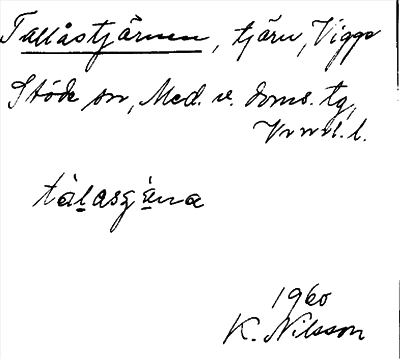 Tallåstjärnen, tjärn, Viggo
Stöde sn, Med. v. doms. tg,
Vnrl. l.
tàlasg̀ äna
1960
K. Nilsson